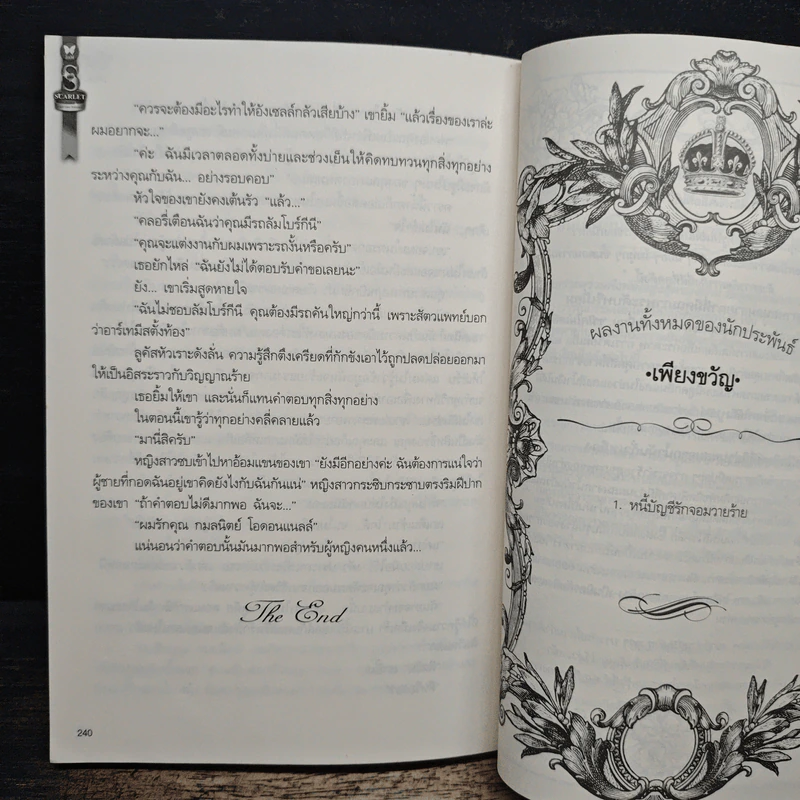 S
SCARLET
"ควรจะต้องมีอะไรทำให้อังเซลส์กลัวเสียบ้าง" เขายิ้ม "แล้วเรื่องของเราล่ะ
ผมอยากจะ..."
"ค่ะ ฉันมีเวลาตลอดทั้งบ่ายและช่วงเย็นให้คิดทบทวนทุกสิ่งทุกอย่าง
ระหว่างคุณกับฉัน... อย่างรอบคอบ"
หัวใจของเขายังคงเต้นรัว "แล้ว..."
"คลอรี่เตือนฉันว่าคุณมีรถลัมโบร์กีนี"
"คุณจะแต่งงานกับผมเพราะรถงั้นหรือครับ"
เธอยักไหล่ "ฉันยังไม่ได้ตอบรับคำขอเลยนะ"
ยัง... เขาเริ่มสูดหายใจ
"ฉันไม่ชอบลัมโบร์กีนี คุณต้องมีรถคันใหญ่กว่านี้ เพราะสัตวแพทย์บอก
ว่าอาร์เทมีสตั้งท้อง"
ลูคัสหัวเราะดังลั่น ความรู้สึกตึงเครียดที่กักขังเอาไว้ถูกปลดปล่อยออกมา
ให้เป็นอิสระราวกับวิญญาณร้าย
เธอยิ้มให้เขา และนั่นก็แทนคำตอบทุกสิ่งทุกอย่าง
ในตอนนี้เขารู้ว่าทุกอย่างคลี่คลายแล้ว
"มานี่สิครับ"
หญิงสาวซบเข้าไปหาอ้อมแขนของเขา "ยังมีอีกอย่างค่ะ ฉันต้องการแน่ใจว่า
ผู้ชายที่กอดฉันอยู่เขาคิดยังไงกับฉันกันแน่" หญิงสาวกระซิบกระซาบตรงริมฝีปาก
ของเขา "ถ้าคำตอบไม่ดีมากพอ ฉันจะ..."
"ผมรักคุณ กมลนิตย์ โอดอนแนลล์"
แน่นอนว่าคำตอบนั้นมันมากพอสำหรับผู้หญิงคนหนึ่งแล้ว...
The End
240
ผลงานทั้งหมดของนักประพันธ์
•เพียงขวัญ•
1. หนี้บัญชีรักจอมวายร้าย